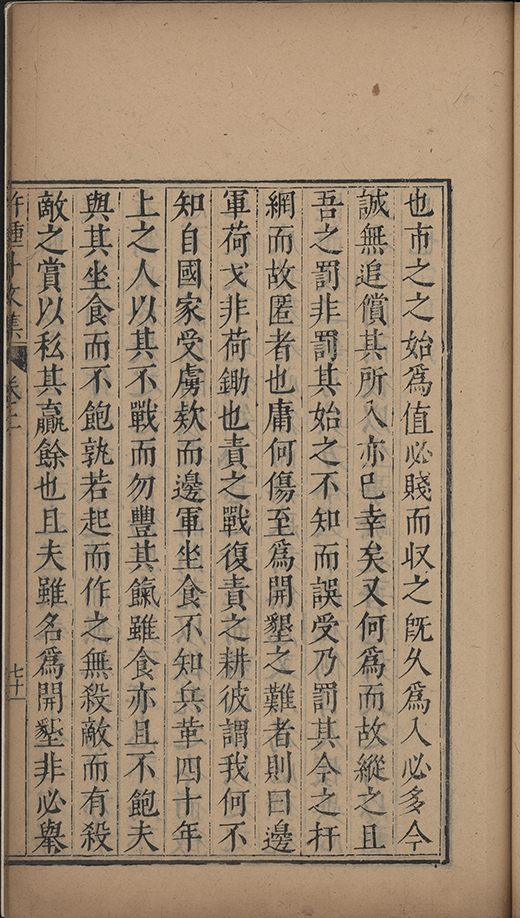 也市之之始爲值必賤而収之旣久爲入必多今
誠無追償其所入亦已幸矣又何爲而故縱之且
吾之罰非罰其始之不知而誤受乃罰其今之扞
網而故匿者也庸何傷至爲開墾之難者則曰邊
軍荷戈非荷鋤也責之戰復責之耕彼謂我何不
知自國家受虜欸而邊軍坐食不知兵革四十年
上之人以其不戰而勿豐其餼雖食亦且不飽夫
與其坐食而不飽孰若起而作之無殺敵而有殺
敵之賞以私其贏餘也且夫雖名爲開墾非必舉
許鍾斗文集 卷之二 七十一